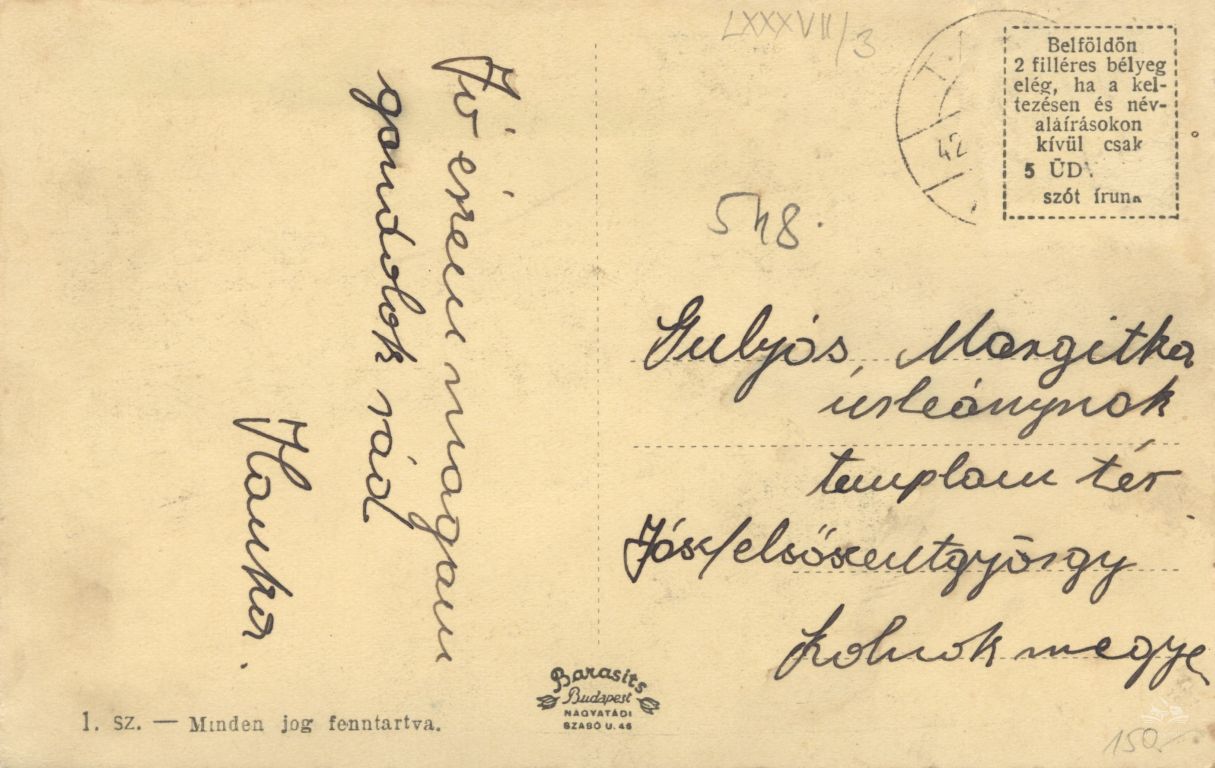 LXXXVII/3
Jól érzem magam
gondolok rád
Hanka.
T.
42
Belföldön
2 filléres bélyeg
elég, ha a kel-
tezésen és név-
aláírásokon
kívül csak
5 ÜDV
szót írunk
548.
Gulyás Margitka
úrleánynak
templom tér
Jászfelsőszentgyörgy
Szolnok megye
Barasits
Budapest
NAGYATÁDI
SZABÓ U. 46
1. SZ. — Minden jog fenntartva.
150.-